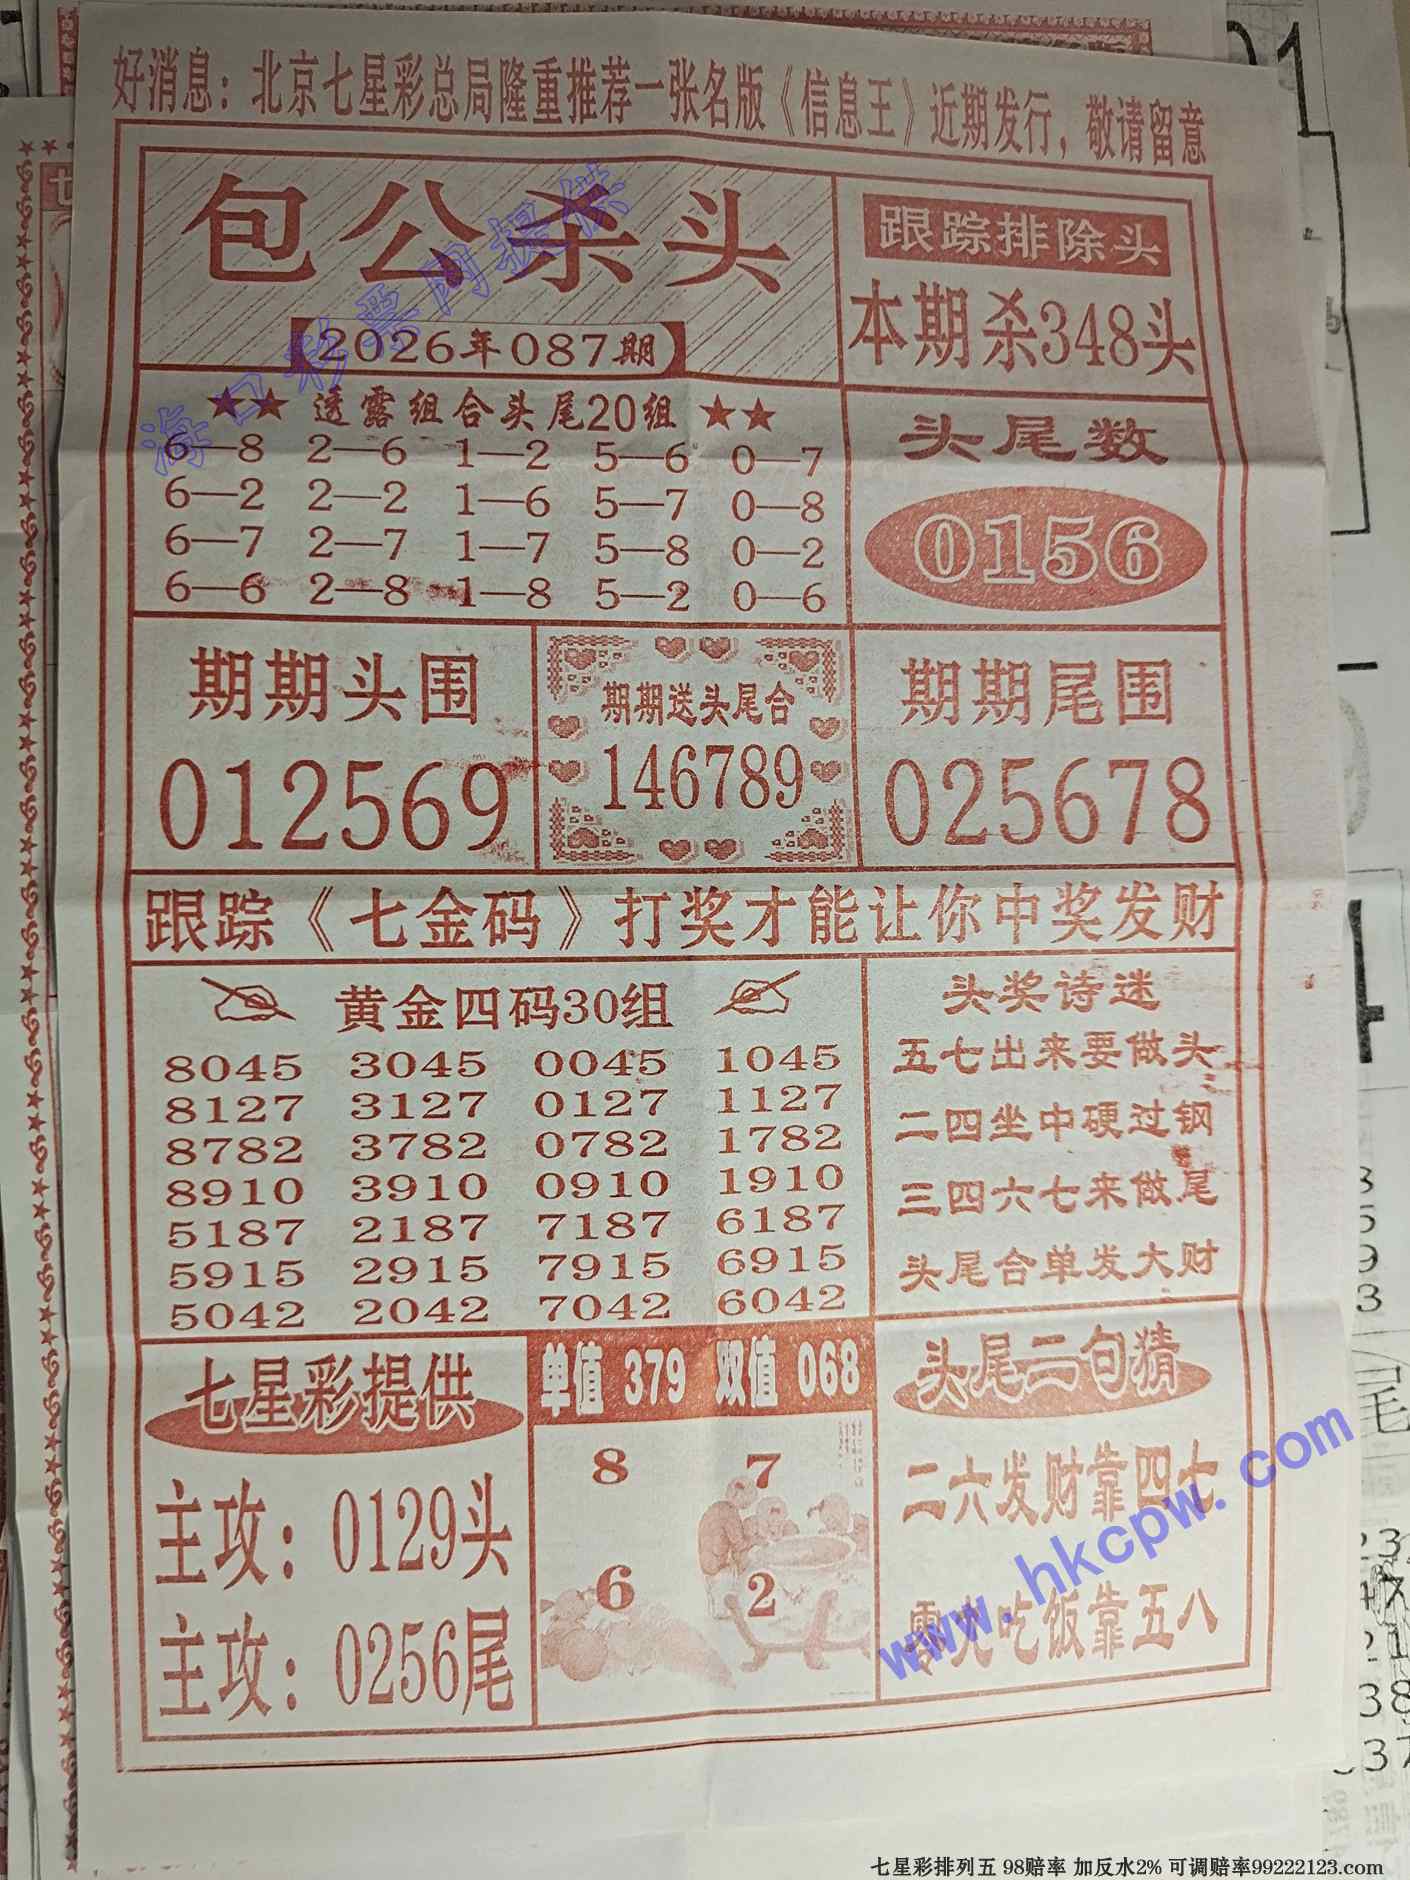 好消息：北京七星彩总局隆重推荐一张名版《信息王》近期发行，敬请留意
包公杀头
【2026年087期】
跟踪排除头
本期杀348头
★★ 透露组合头尾20组 ★★
6—8 2—6 1—2 5—6 0—7
6—2 2—2 1—6 5—7 0—8
6—7 2—7 1—7 5—8 0—2
6—6 2—8 1—8 5—2 0—6
头尾数
0156
期期头围
012569
期期送头尾合
146789
期期尾围
025678
跟踪《七金码》打奖才能让你中奖发财
黄金四码30组
8045 3045 0045 1045
8127 3127 0127 1127
8782 3782 0782 1782
8910 3910 0910 1910
5187 2187 7187 6187
5915 2915 7915 6915
5042 2042 7042 6042
头奖诗迷
五七出来要做头
二四坐中硬过钢
三四六七来做尾
头尾合单发大财
七星彩提供
主攻：0129头
主攻：0256尾
单值 379 双值 068
8 7
6 2
头尾二句猜
二六发财靠四七
零火吃饭靠五八
海口彩票网提供
www.hkcpw.com
七星彩排列五 98赔率 加反水2% 可调赔率99222123.com